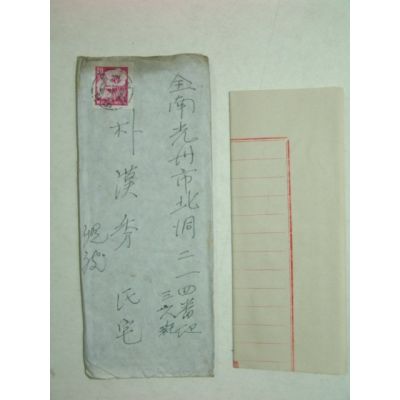 全南光州市北洞二一四番地
三六班
朴漢秀氏宅